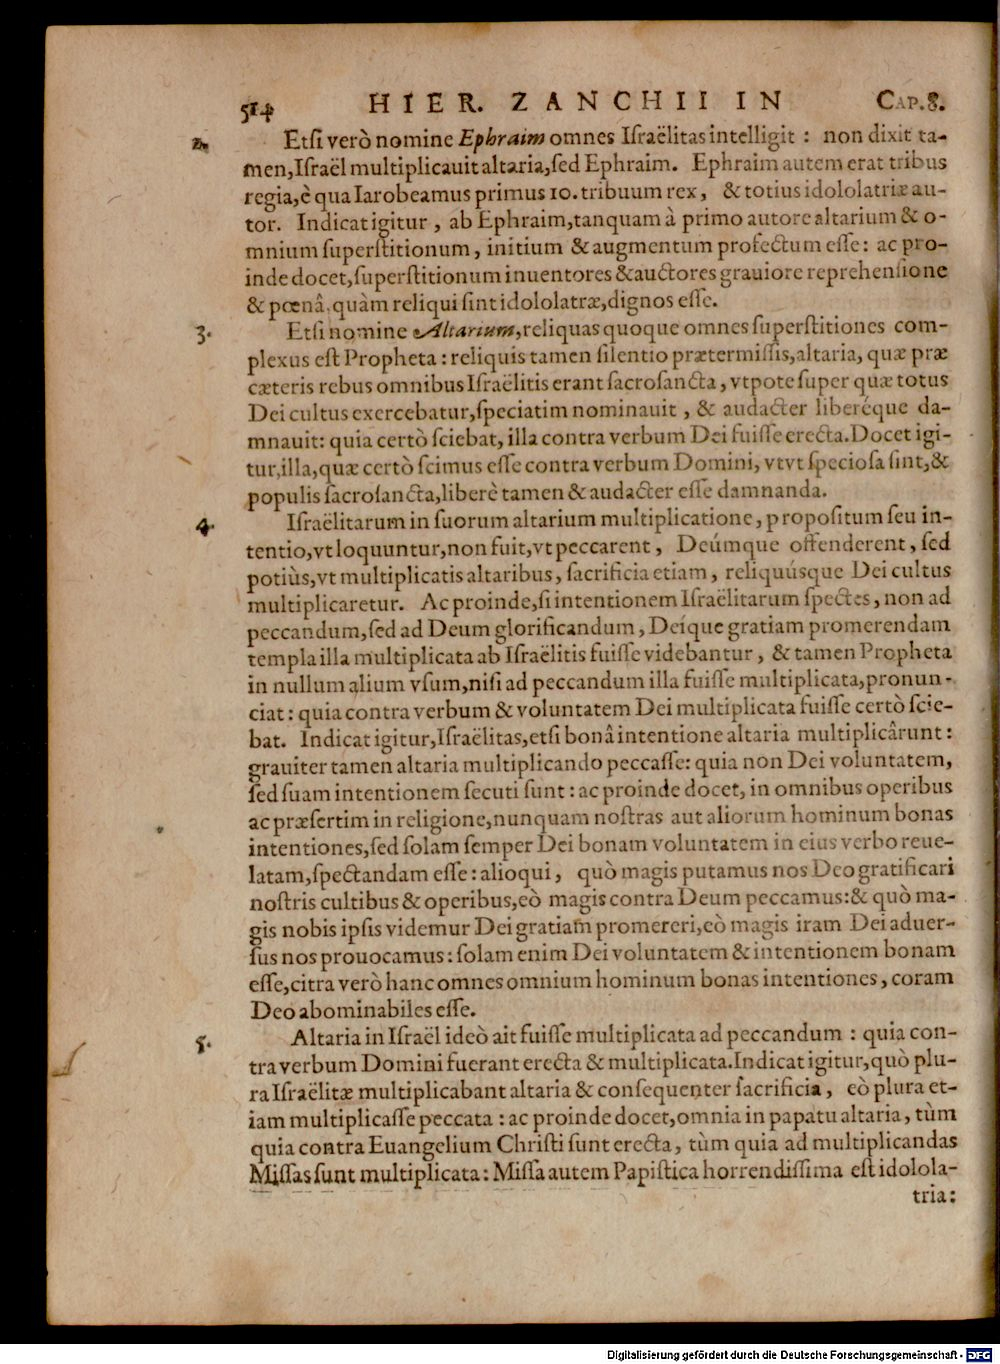 514 HIER. ZANCHII IN CAP. 8.
2. Etſi verò nomine Ephraim omnes Iſraëlitas intelligit : non dixit ta-
men, Iſraël multiplicauit altaria, ſed Ephraim. Ephraim autem erat tribus
regia, è qua Iarobeamus primus 10. tribuum rex, & totius idololatriæ au-
tor. Indicat igitur, ab Ephraim, tanquam à primo autore altarium & o-
mnium ſuperſtitionum, initium & augmentum profectum eſſe: ac pro-
inde docet, ſuperſtitionum inuentores & auctores grauiore reprehenſione
& pœnâ, quàm reliqui ſint idololatræ, dignos eſſe.
3. Etſi nomine Altarium, reliquas quoque omnes ſuperſtitiones com-
plexus eſt Propheta: reliquis tamen ſilentio prætermiſſis, altaria, quæ præ
cæteris rebus omnibus Iſraëlitis erant ſacroſancta, vtpote ſuper quæ totus
Dei cultus exercebatur, ſpeciatim nominauit, & audacter liberéque da-
mnauit: quia certò ſciebat, illa contra verbum Dei fuiſſe erecta. Docet igi-
tur, illa, quæ certò ſcimus eſſe contra verbum Domini, vtvt ſpecioſa ſint, &
populis ſacroſancta, liberè tamen & audacter eſſe damnanda.
4. Iſraëlitarum in ſuorum altarium multiplicatione, propoſitum ſeu in-
tentio, vt loquuntur, non fuit, vt peccarent, Deúmque offenderent, ſed
potiùs, vt multiplicatis altaribus, ſacrificia etiam, reliquúsque Dei cultus
multiplicaretur. Ac proinde, ſi intentionem Iſraëlitarum ſpectes, non ad
peccandum, ſed ad Deum glorificandum, Deique gratiam promerendam
templa illa multiplicata ab Iſraëlitis fuiſſe videbantur, & tamen Propheta
in nullum alium vſum, niſi ad peccandum illa fuiſſe multiplicata, pronun-
ciat: quia contra verbum & voluntatem Dei multiplicata fuiſſe certò ſcie-
bat. Indicat igitur, Iſraëlitas, etſi bonâ intentione altaria multiplicârunt:
grauiter tamen altaria multiplicando peccaſſe: quia non Dei voluntatem,
ſed ſuam intentionem ſecuti ſunt: ac proinde docet, in omnibus operibus
ac præſertim in religione, nunquam noſtras aut aliorum hominum bonas
intentiones, ſed ſolam ſemper Dei bonam voluntatem in eius verbo reue-
latam, ſpectandam eſſe: alioqui, quò magis putamus nos Deo gratificari
noſtris cultibus & operibus, eò magis contra Deum peccamus: & quò ma-
gis nobis ipſis videmur Dei gratiam promereri, eò magis iram Dei aduer-
ſus nos prouocamus: ſolam enim Dei voluntatem & intentionem bonam
eſſe, citra verò hanc omnes omnium hominum bonas intentiones, coram
Deo abominabiles eſſe.
5. Altaria in Iſraël ideò ait fuiſſe multiplicata ad peccandum : quia con-
tra verbum Domini fuerant erecta & multiplicata. Indicat igitur, quò plu-
ra Iſraëlitæ multiplicabant altaria & conſequenter ſacrificia, eò plura et-
iam multiplicaſſe peccata : ac proinde docet, omnia in papatu altaria, tùm
quia contra Euangelium Chriſti ſunt erecta, tùm quia ad multiplicandas
Miſſas ſunt multiplicata: Miſſa autem Papiſtica horrendiſſima eſt idolola-
tria:
Digitalisierung gefördert durch die Deutsche Forschungsgemeinschaft - DFG